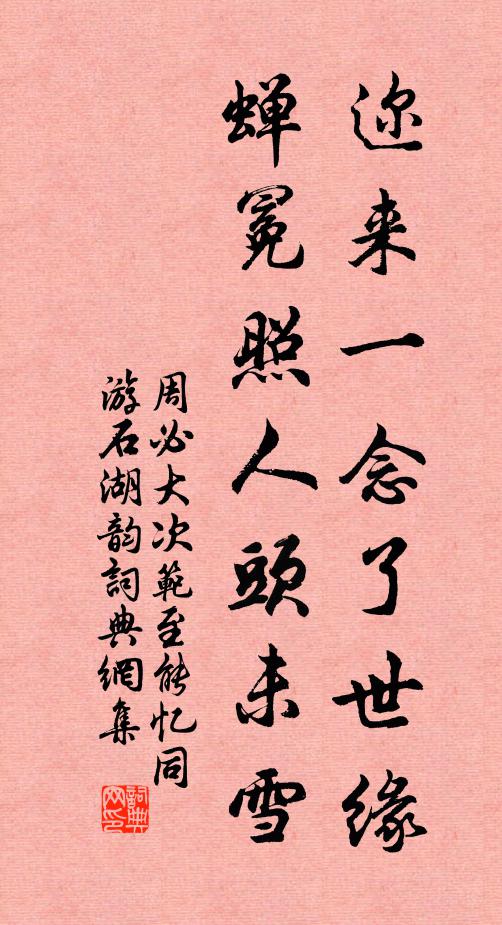 迩来一念了世缘
蝉冕照人頭未雪
周必大次範至能忆同
游石湖韵詞典網集
詞典
网印